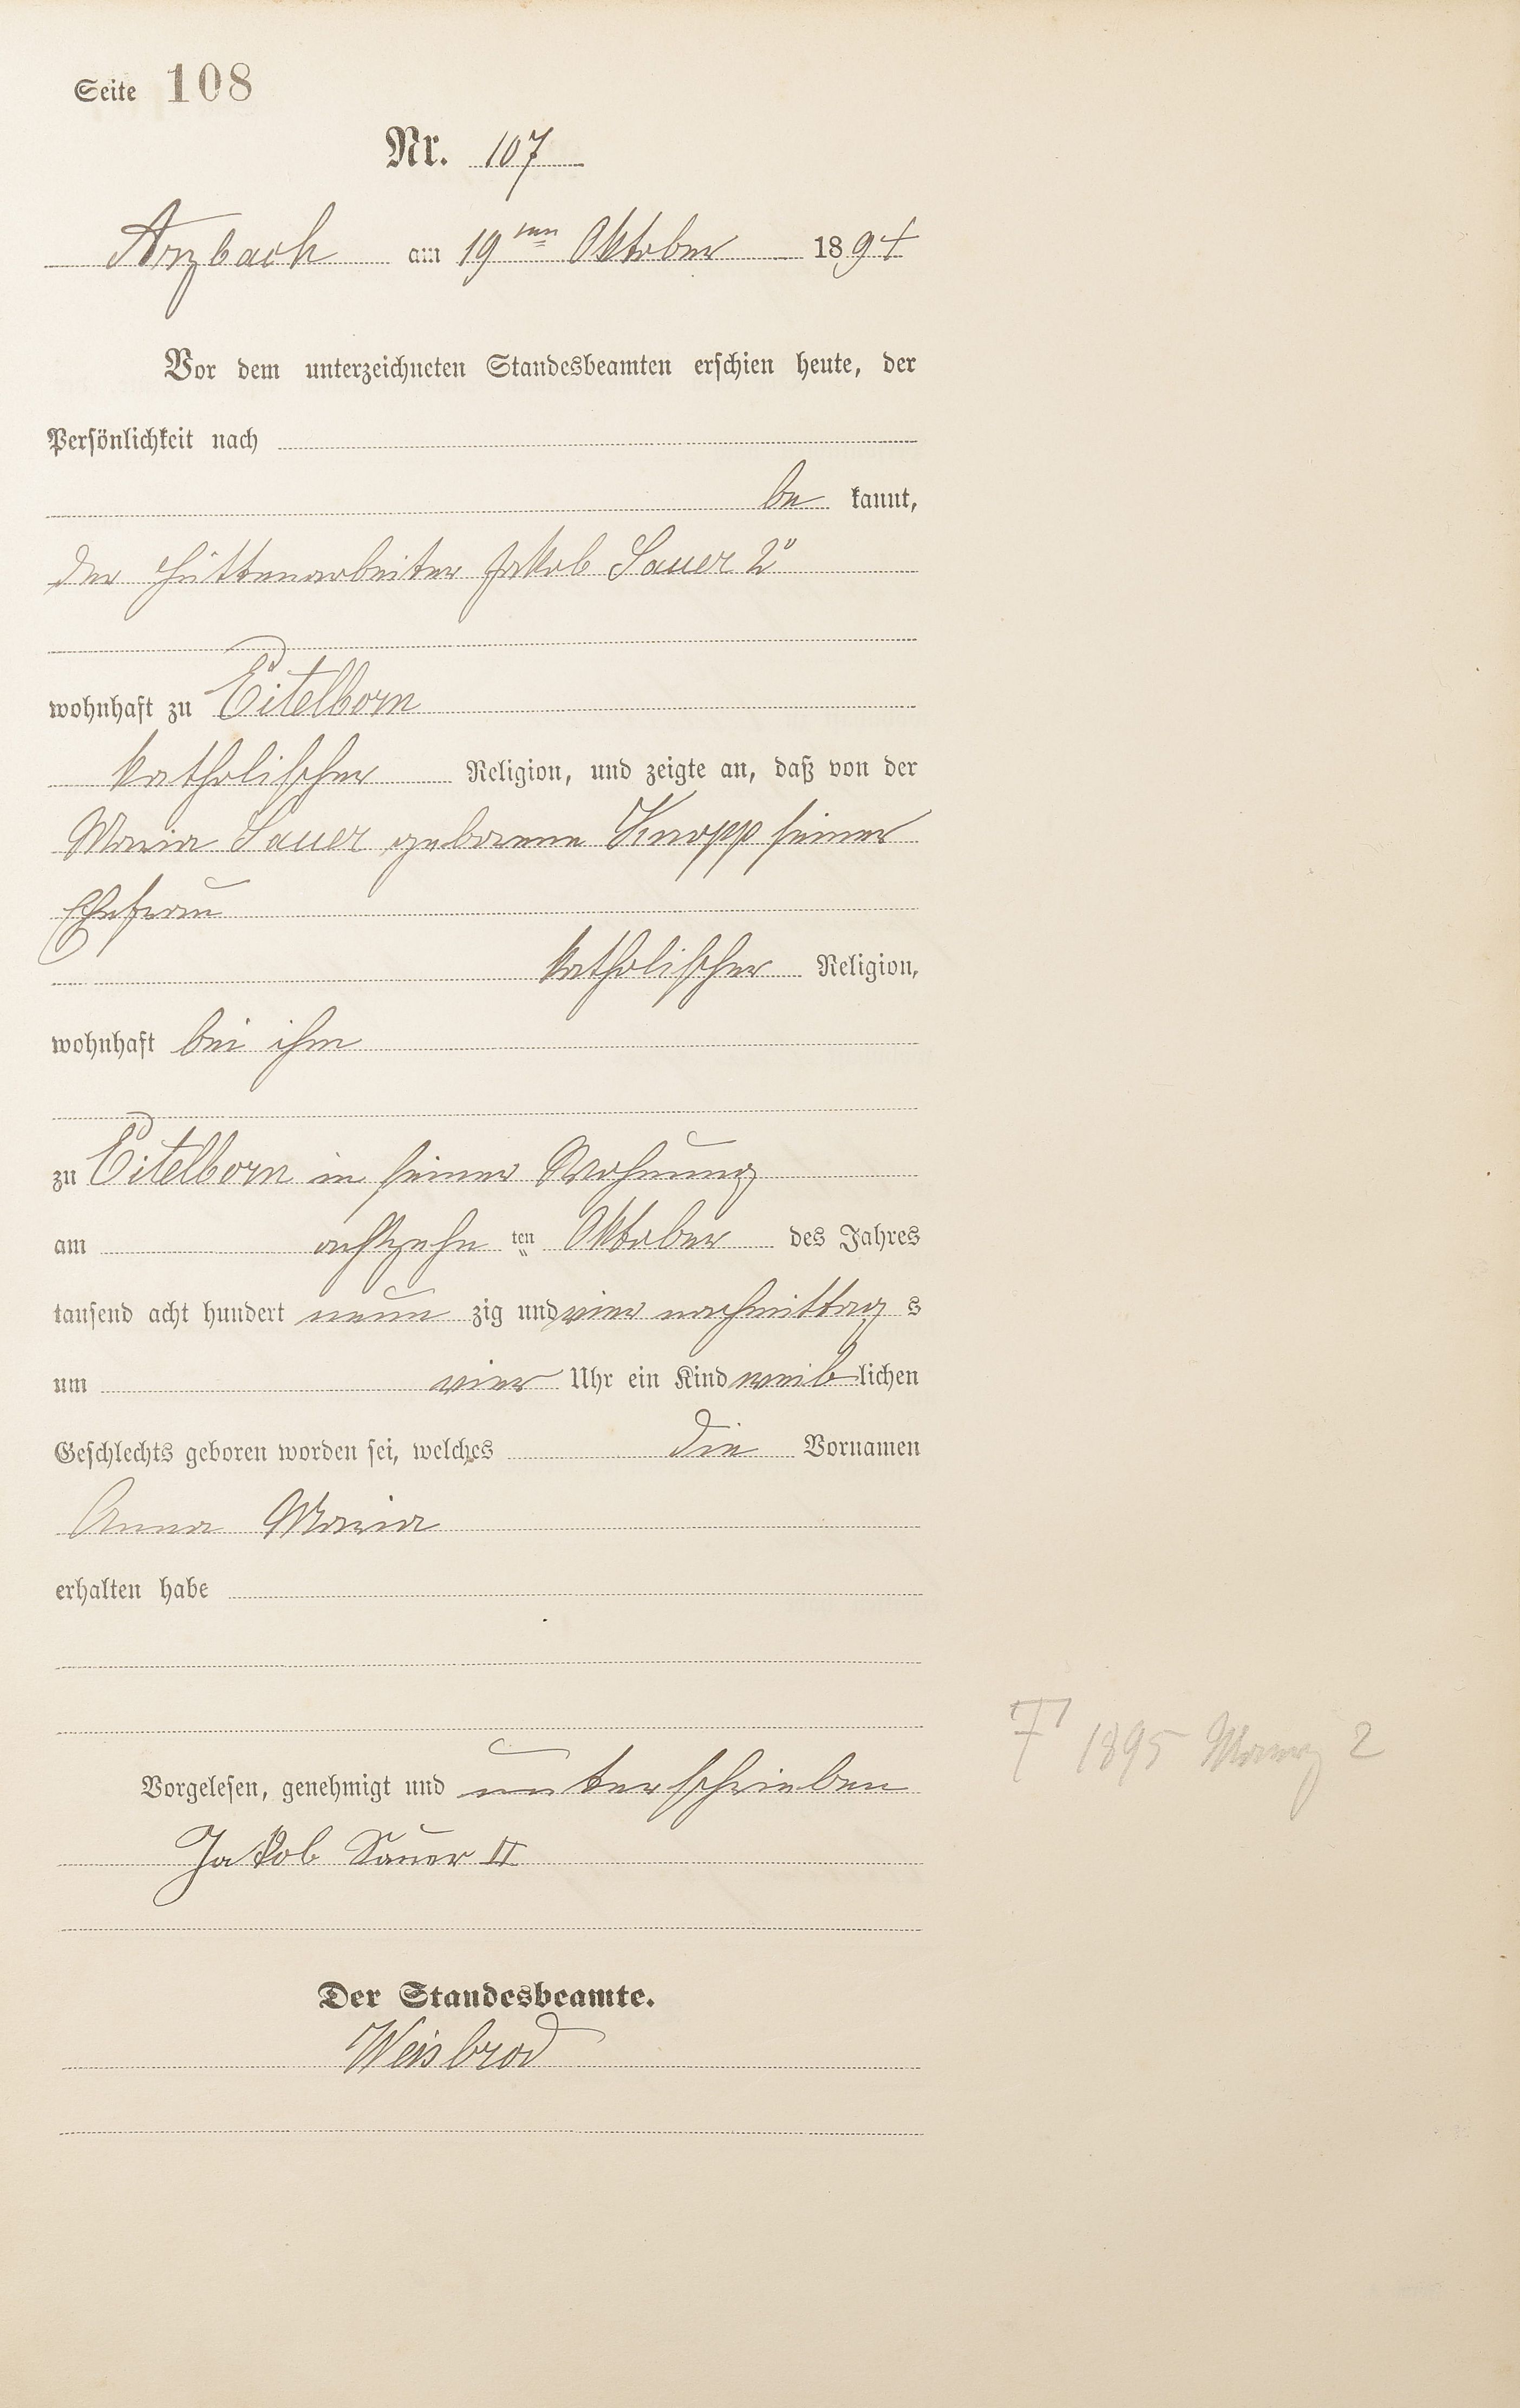 Seite 108
Nr. 107
Arzbach am 19ten Oktober 1894
Vor dem unterzeichneten Standesbeamten erschien heute, der
Persönlichkeit nach
be kannt,
der Hüttenarbeiter Jakob Sauer 2r
wohnhaft zu Eitelborn
katholischer Religion, und zeigte an, daß von der
Maria Sauer geborene Knopp seiner
Ehefrau
katholischer Religion,
wohnhaft bei ihm
zu Eitelborn in seiner Wohnung
am achtzehn ten Oktober des Jahres
tausend acht hundert neun zig und vier nachmittag s
um vier Uhr ein Kind weiblichen
Geschlechts geboren worden sei, welches die Vornamen
Anna Maria
erhalten habe
† 1895 2
Vorgelesen, genehmigt und unterschrieben
Jakob Sauer II
Der Standesbeamte.
Weisbrod